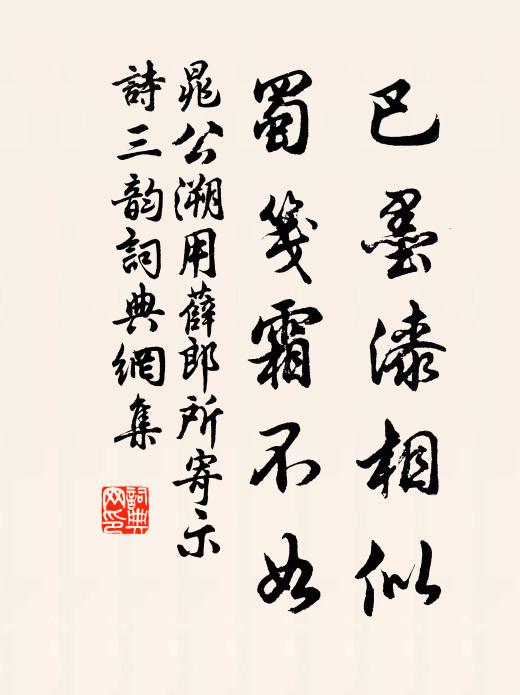 巴墨漆相似
蜀笺霜不如
晁公溯用薛郎所寄示
詩三韵詞典網集
詞典網印